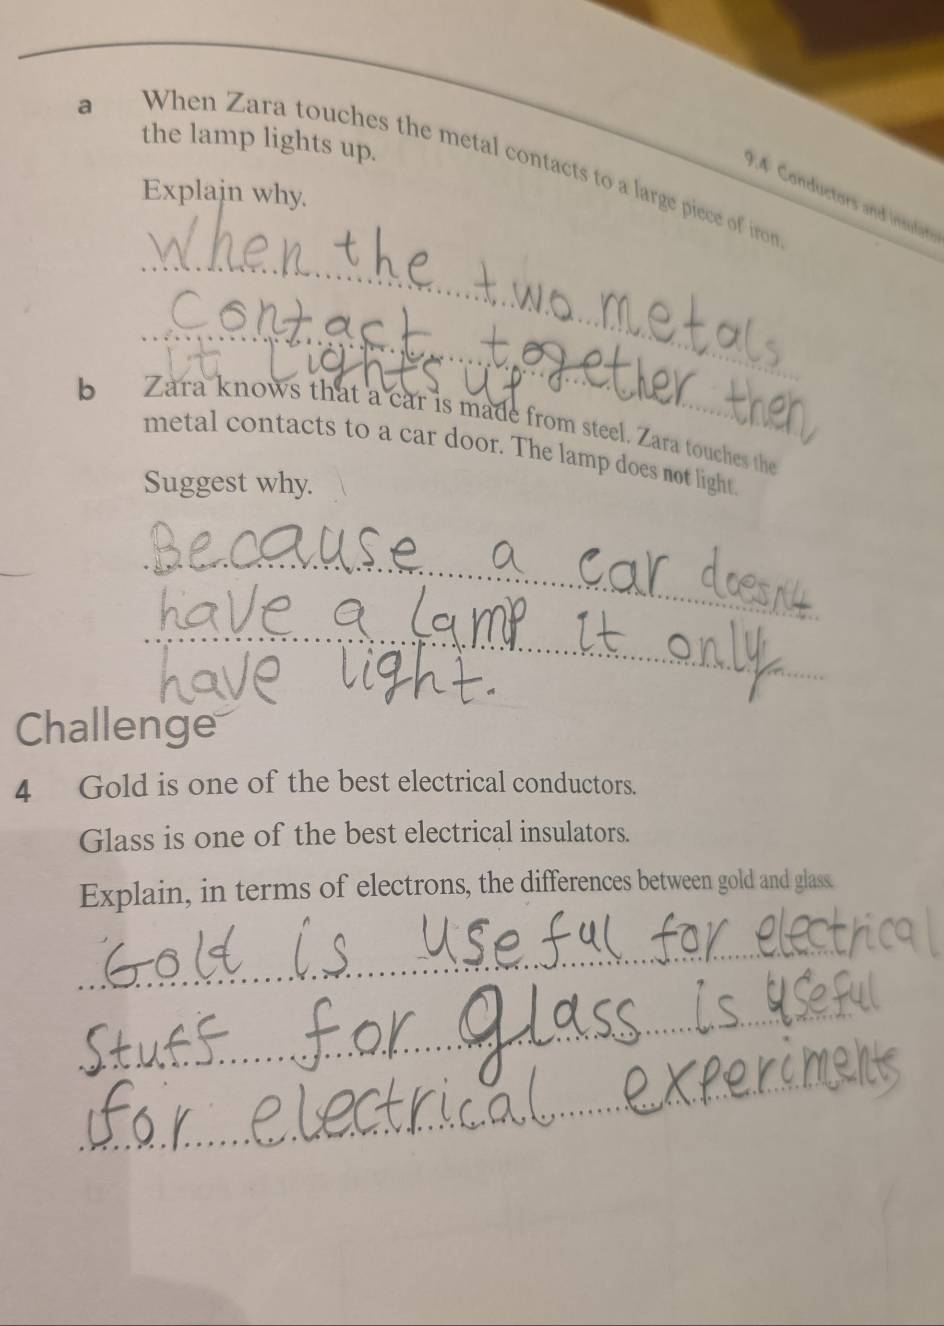 9.4 Conductors and insulators
a When Zara touches the metal contacts to a large piece of iron,
the lamp lights up.
Explain why.
When the two metals
contact together then
it lights up
b Zara knows that a car is made from steel. Zara touches the
metal contacts to a car door. The lamp does not light.
Suggest why.
Because a car doesnt
have a lamp it only
have light.
Challenge
4 Gold is one of the best electrical conductors.
Glass is one of the best electrical insulators.
Explain, in terms of electrons, the differences between gold and glass.
Gold is useful for electrical
stuff for glass is useful
for electrical experiments